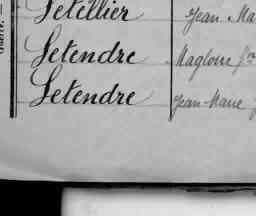 Letellier Jean Ma
Letendre Magloire
Letendre Jean-Marie